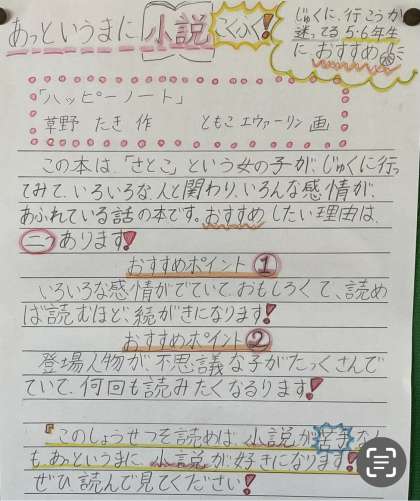 あっというまに小説こくふく！
じゅくに、行こうか
迷ってる5・6年生
に、おすすめ
「ハッピーノート」
草野 たき 作 ともこエヴァーソン 画
この本は、「さとこ」という女の子が、じゅくに行っ
てみて、いろいろな、人と関わり、いろんな感情が、
あふれている話の本です。おすすめしたい理由は、
二つあります！
おすすめポイント①
いろいろな感情がでていて、おもしろくて、読め
ば読むほど、続がきになります！
おすすめポイント②
登場人物が、不思議な子がたっくさんで
ていて、何回も読みたくなるります！
『このしょうせつを読めば、小説が苦手な人
も、あっというまに、小説が好きになります！
ぜひ読んで見てください！